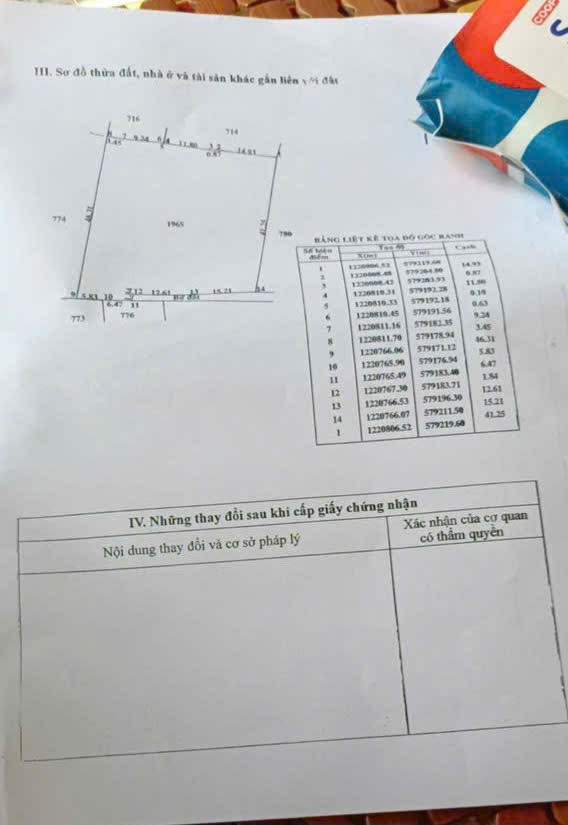 COOP
III. Sơ đồ thửa đất, nhà ở và tài sản khác gắn liền với đất
716
714
8 7 9.24 6 4 11.80 3 2 14.93 1
3.45 5 0.87
774
46.31
1965
41.25
780
9 5.83 10 12 12.61 13 15.21 14
Bờ đất
6.47 11
773 776
BẢNG LIỆT KÊ TỌA ĐỘ GÓC RANH
Số hiệu điểm Tọa độ Cạnh
X(m) Y(m)
1 1220806.52 579219.60 14.93
2 1220808.48 579204.80 0.87
3 1220808.42 579203.93 11.80
4 1220810.31 579192.28 0.10
5 1220810.33 579192.18 0.63
6 1220810.45 579191.56 9.24
7 1220811.16 579182.35 3.45
8 1220811.70 579178.94 46.31
9 1220766.06 579171.12 5.83
10 1220765.90 579176.94 6.47
11 1220765.49 579183.40 1.84
12 1220767.30 579183.71 12.61
13 1220766.53 579196.30 15.21
14 1220766.07 579211.50 41.25
1 1220806.52 579219.60
IV. Những thay đổi sau khi cấp giấy chứng nhận
Nội dung thay đổi và cơ sở pháp lý
Xác nhận của cơ quan
có thẩm quyền